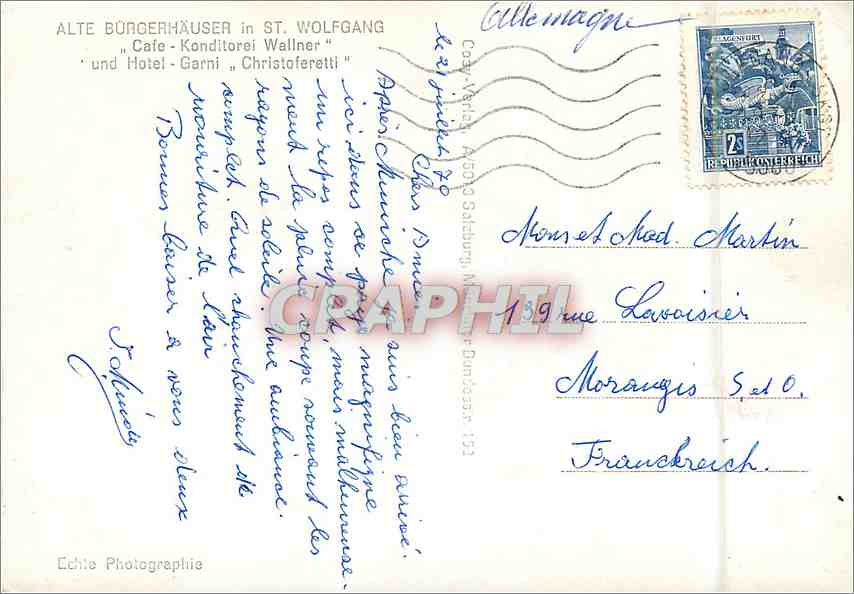 ALTE BÜRGERHÄUSER in ST. WOLFGANG
„Cafe - Konditorei Wallner"
und Hotel - Garni „Christoforetti"
Allemagne
KLAGENFURT
2S
REPUBLIK ÖSTERREICH
le 21 juillet 70
Chers Amies.
Après Muniche je suis bien arrivé.
ici dans ce pays magnifique
un repos complet, mais malheureuse-
ment la pluie coupe souvent les
rayons de soleile. Une ambiance
complet. Quel chanchement de
nouriture de l'air
Bonnes baiser a vous deux
Cosy-Verlag, A/5013 Salzburg, 153
Mons et Mad. Martin
139 rue Lavoisier
Morangis S. et O.
Franckreich.
Echte Photographie
CRAPHIL